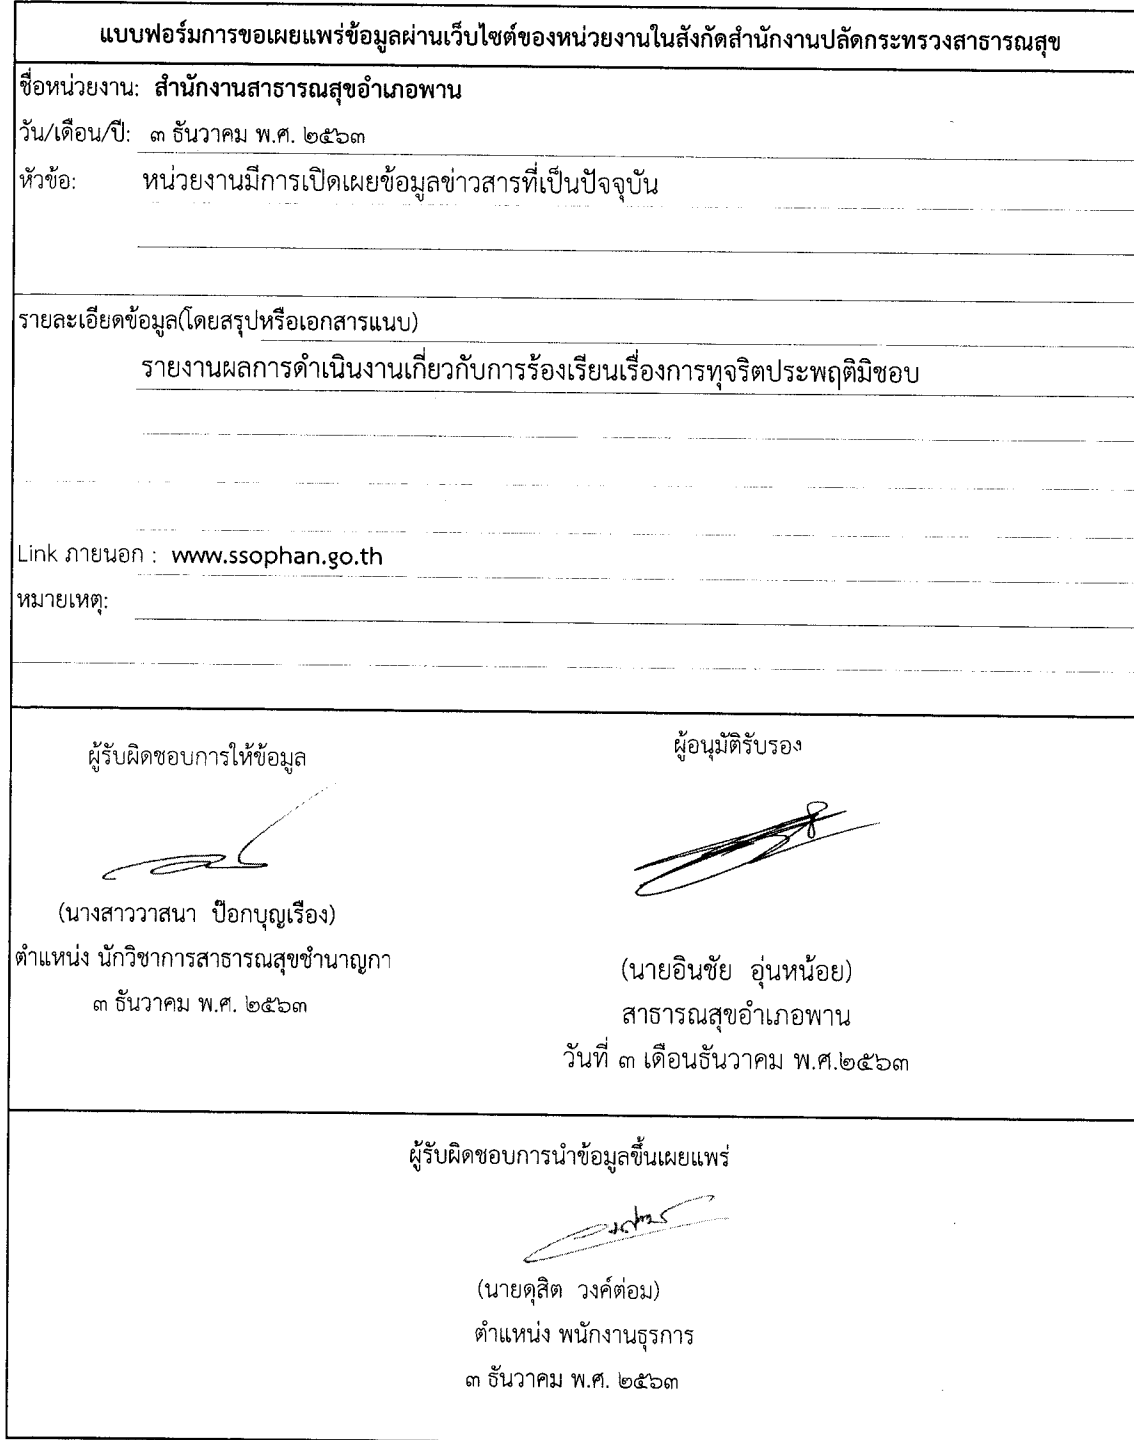 แบบฟอร์มการขอเผยแพร่ข้อมูลผ่านเว็บไซต์ของหน่วยงานในสังกัดสำนักงานปลัดกระทรวงสาธารณสุข
ชื่อหน่วยงาน: สำนักงานสาธารณสุขอำเภอพาน
วัน/เดือน/ปี: ๓ ธันวาคม พ.ศ. ๒๕๖๓
หัวข้อ: หน่วยงานมีการเปิดเผยข้อมูลข่าวสารที่เป็นปัจจุบัน
รายละเอียดข้อมูล(โดยสรุปหรือเอกสารแนบ)
รายงานผลการดำเนินงานเกี่ยวกับการร้องเรียนเรื่องการทุจริตประพฤติมิชอบ
Link ภายนอก : www.ssophan.go.th
หมายเหตุ:
ผู้รับผิดชอบการให้ข้อมูล
(นางสาววาสนา ป๊อกบุญเรือง)
ตำแหน่ง นักวิชาการสาธารณสุขชำนาญกา
๓ ธันวาคม พ.ศ. ๒๕๖๓
ผู้อนุมัติรับรอง
(นายอินชัย อุ่นหน้อย)
สาธารณสุขอำเภอพาน
วันที่ ๓ เดือนธันวาคม พ.ศ.๒๕๖๓
ผู้รับผิดชอบการนำข้อมูลขึ้นเผยแพร่
(นายดุสิต วงค์ต่อม)
ตำแหน่ง พนักงานธุรการ
๓ ธันวาคม พ.ศ. ๒๕๖๓